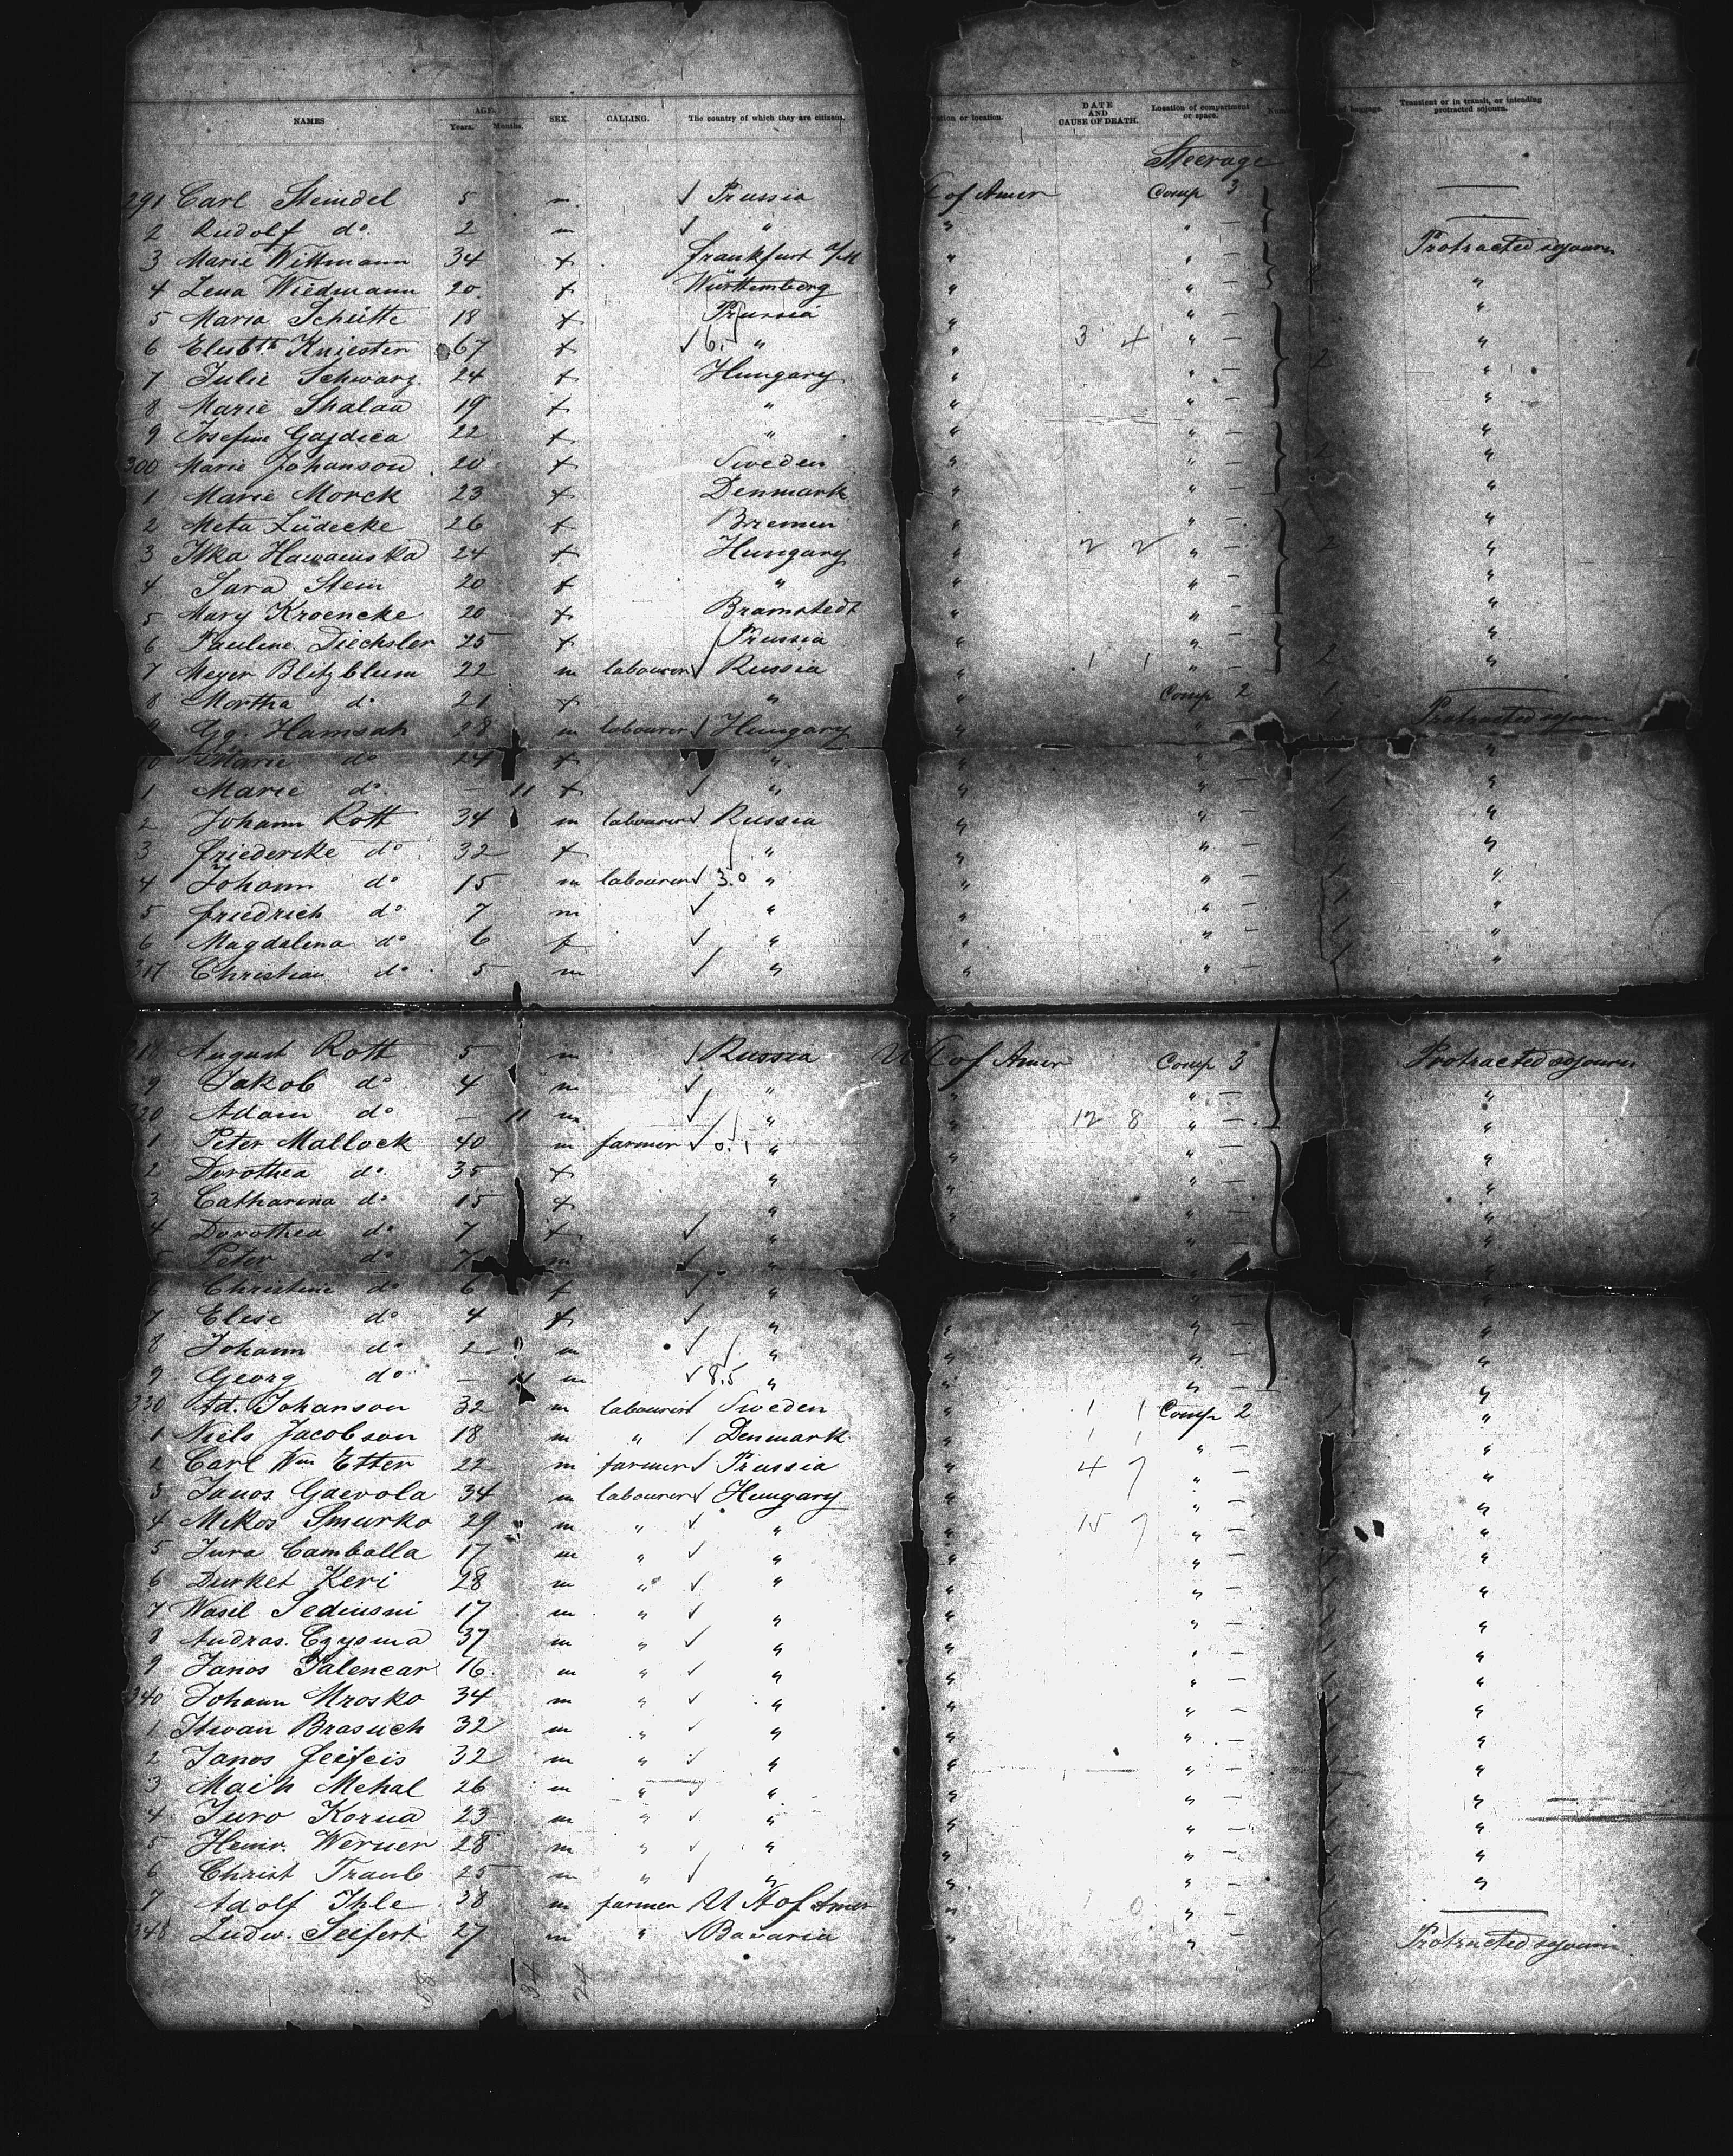 NAMES AGE. Years. Months. SEX. CALLING. The country of which they are citizens. ation or location. DATE AND CAUSE OF DEATH. Location of compartment or space. baggage. Transient or in transit, or intending protracted sojourn.
Steerage
291 Carl Steindel 5 m. √ Prussia of Amer Comp 3 —
2 Rudolf do. 2 m √ " " " — —
3 Marie Wittmann 34 f Frankfurt a/M " " — Protracted sojourn
4 Lena Wiedmann 20. f Württemberg " " — "
5 Maria Schütte 18 f Prussia " " — "
6 Elisbth Kniester 67 f √ 6. " " 3 4 " — 2 "
7 Julie Schwarz. 24 f Hungary " " — "
8 Marie 19 f " " " — "
9 Josefine 22 f " " " — "
300 Marie Johanson 20 f Sweden " " — 2 "
1 Marie Morck 23 f Denmark " " — "
2 Meta Lüdecke 26 f Bremen " " — "
3 24 f Hungary " 2 2 " — 2 "
4 Sara Stein 20 f " " " — "
5 Mary Kroencke 20 f Bramstedt " " — "
6 Pauline Diechsler 25 f Prussia " " — "
7 Meyer Blitzblum 22 m labourer √ Russia " 1 1 " — 2 "
8 Mortha do 21 f " " Comp 2 1 —
9 Gg. Hamsah 28 m labourer √ Hungary " " 1 Protracted sojourn
10 Marie do 24 f " " " — 1 "
1 Marie do. — 11 f √ " " " — 1 "
2 Johann Rott 34 m labourer √ Russia " " — 1 "
3 Friedericke do 32 f " " " — "
4 Johann do 15 m labourer √ 3.0 " " " — 1 "
5 Friedrich do 7 m √ " " " — 1 "
6 Magdalena do 6 f √ " " " — 1 "
317 Christian do 5 m √ " " " — 1 "
August Rott 5 m √ Russia U of Amer Comp 3 Protracted sojourn
9 Jakob do 4 m √ " " " — "
320 Adam do — 11 m √ " " 12 8 " — "
1 Peter Mallock 40 m farmer √ 0.1 " " " — "
2 Dorothea do 35 f " " " — "
3 Catharina do 15 f " " " — "
4 Dorothea do 7 f √ " " — "
5 Peter do 7 m √ " " "
6 Christine do 6 f √ " "
7 Elise do 4 f √ " " " — "
8 Johann do 2 m √ " " " — "
9 Georg do — m √ 8.5 " " " — "
330 Ad. Johanson 32 m labourer √ Sweden " 1 1 Comp 2 1 "
1 Niels Jacobson 18 m " √ Denmark " 1 1 " — "
2 Carl Wm Etter 22 m farmer √ Prussia " 4 7 " — "
3 Janos Gaevola 34 m labourer √ Hungary " " — "
4 Mikos Smurko 29 m " √ " " 15 7 " — "
5 Jura Camballa 17 m " √ " " " — "
6 Durket Keri 28 m " √ " " " — 1 "
7 Wasil 17 m " √ " " " — 1 "
8 Andras. Czysma 37 m " √ " " " — 1 "
9 Janos 16. m " √ " " " — 1 "
340 Johann Mrosko 34 m " √ " " " — 1 "
1 Brasuch 32 m " √ " " " — "
2 Janos 32 m " √ " " " — "
3 Maih Mehal 26 m " √ " " " — "
4 Juro Korua 23 m " √ " " " — 1 "
5 Heinr. Werner 28 m " √ " " " — 1 "
6 Christ Traub 25 m " √ " " " — 1 "
7 Adolf Ihle 38 m farmer U St of Amer " 0 " — —
348 Ludw. Seifert 27 m " √ Bavaria " " Protracted sojourn
58 34 24